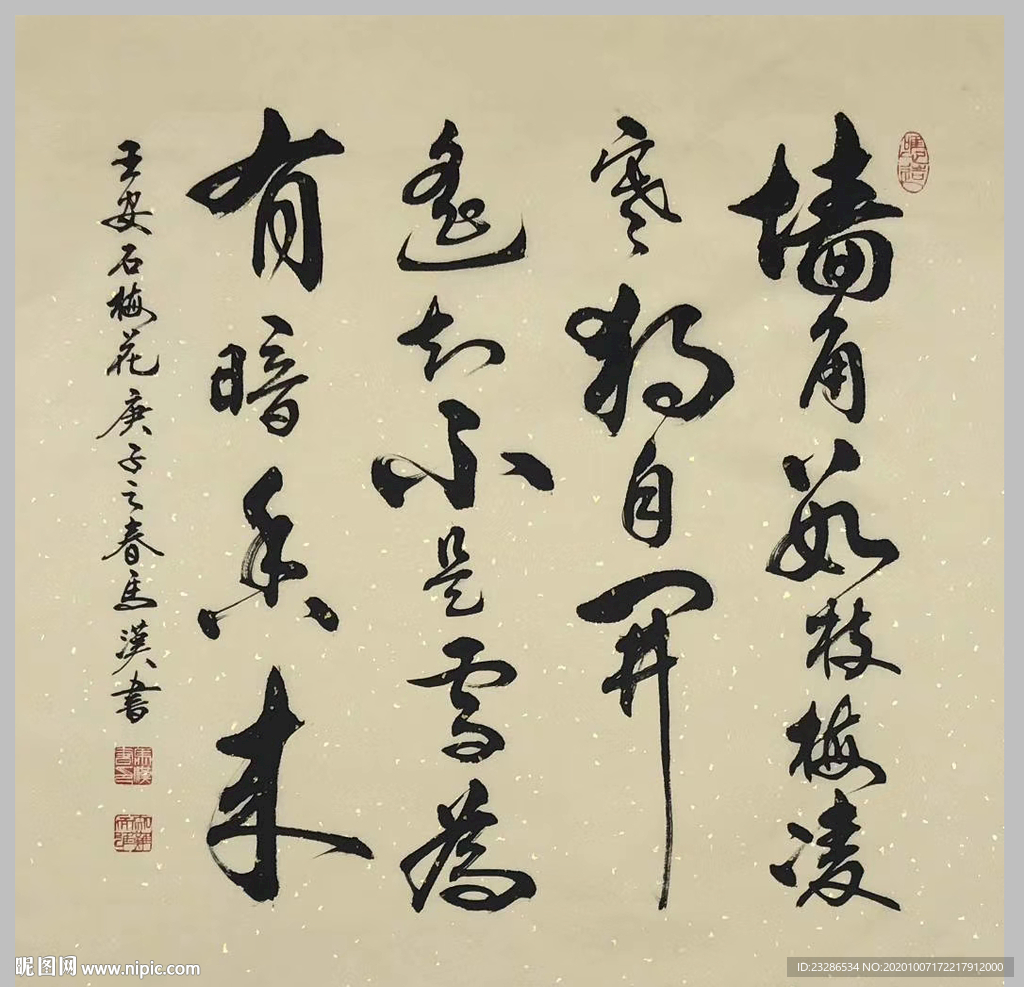 墙角数枝梅凌
寒独自開
遥知不是雪為
有暗香来
王安石梅花庚子之春馬漢書
昵图网 www.nipic.com
ID:23286534 NO:20201007172217912000